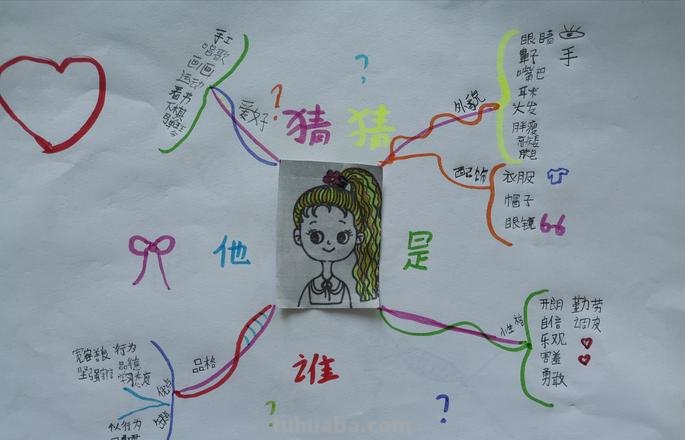 猜猜
他是
谁
?
?
爱好
手工
唱歌
画画
运动
看书
下棋
外貌
眼睛
鼻子
手
嘴巴
耳朵
头发
胖瘦
高矮
配饰
衣服
帽子
眼镜
性格
开朗 勤劳
自信 调皮
乐观
害羞
勇敢
品格
优点
行为
品德
学习态度
坚强
以行为
?
?
tuhuaba.com